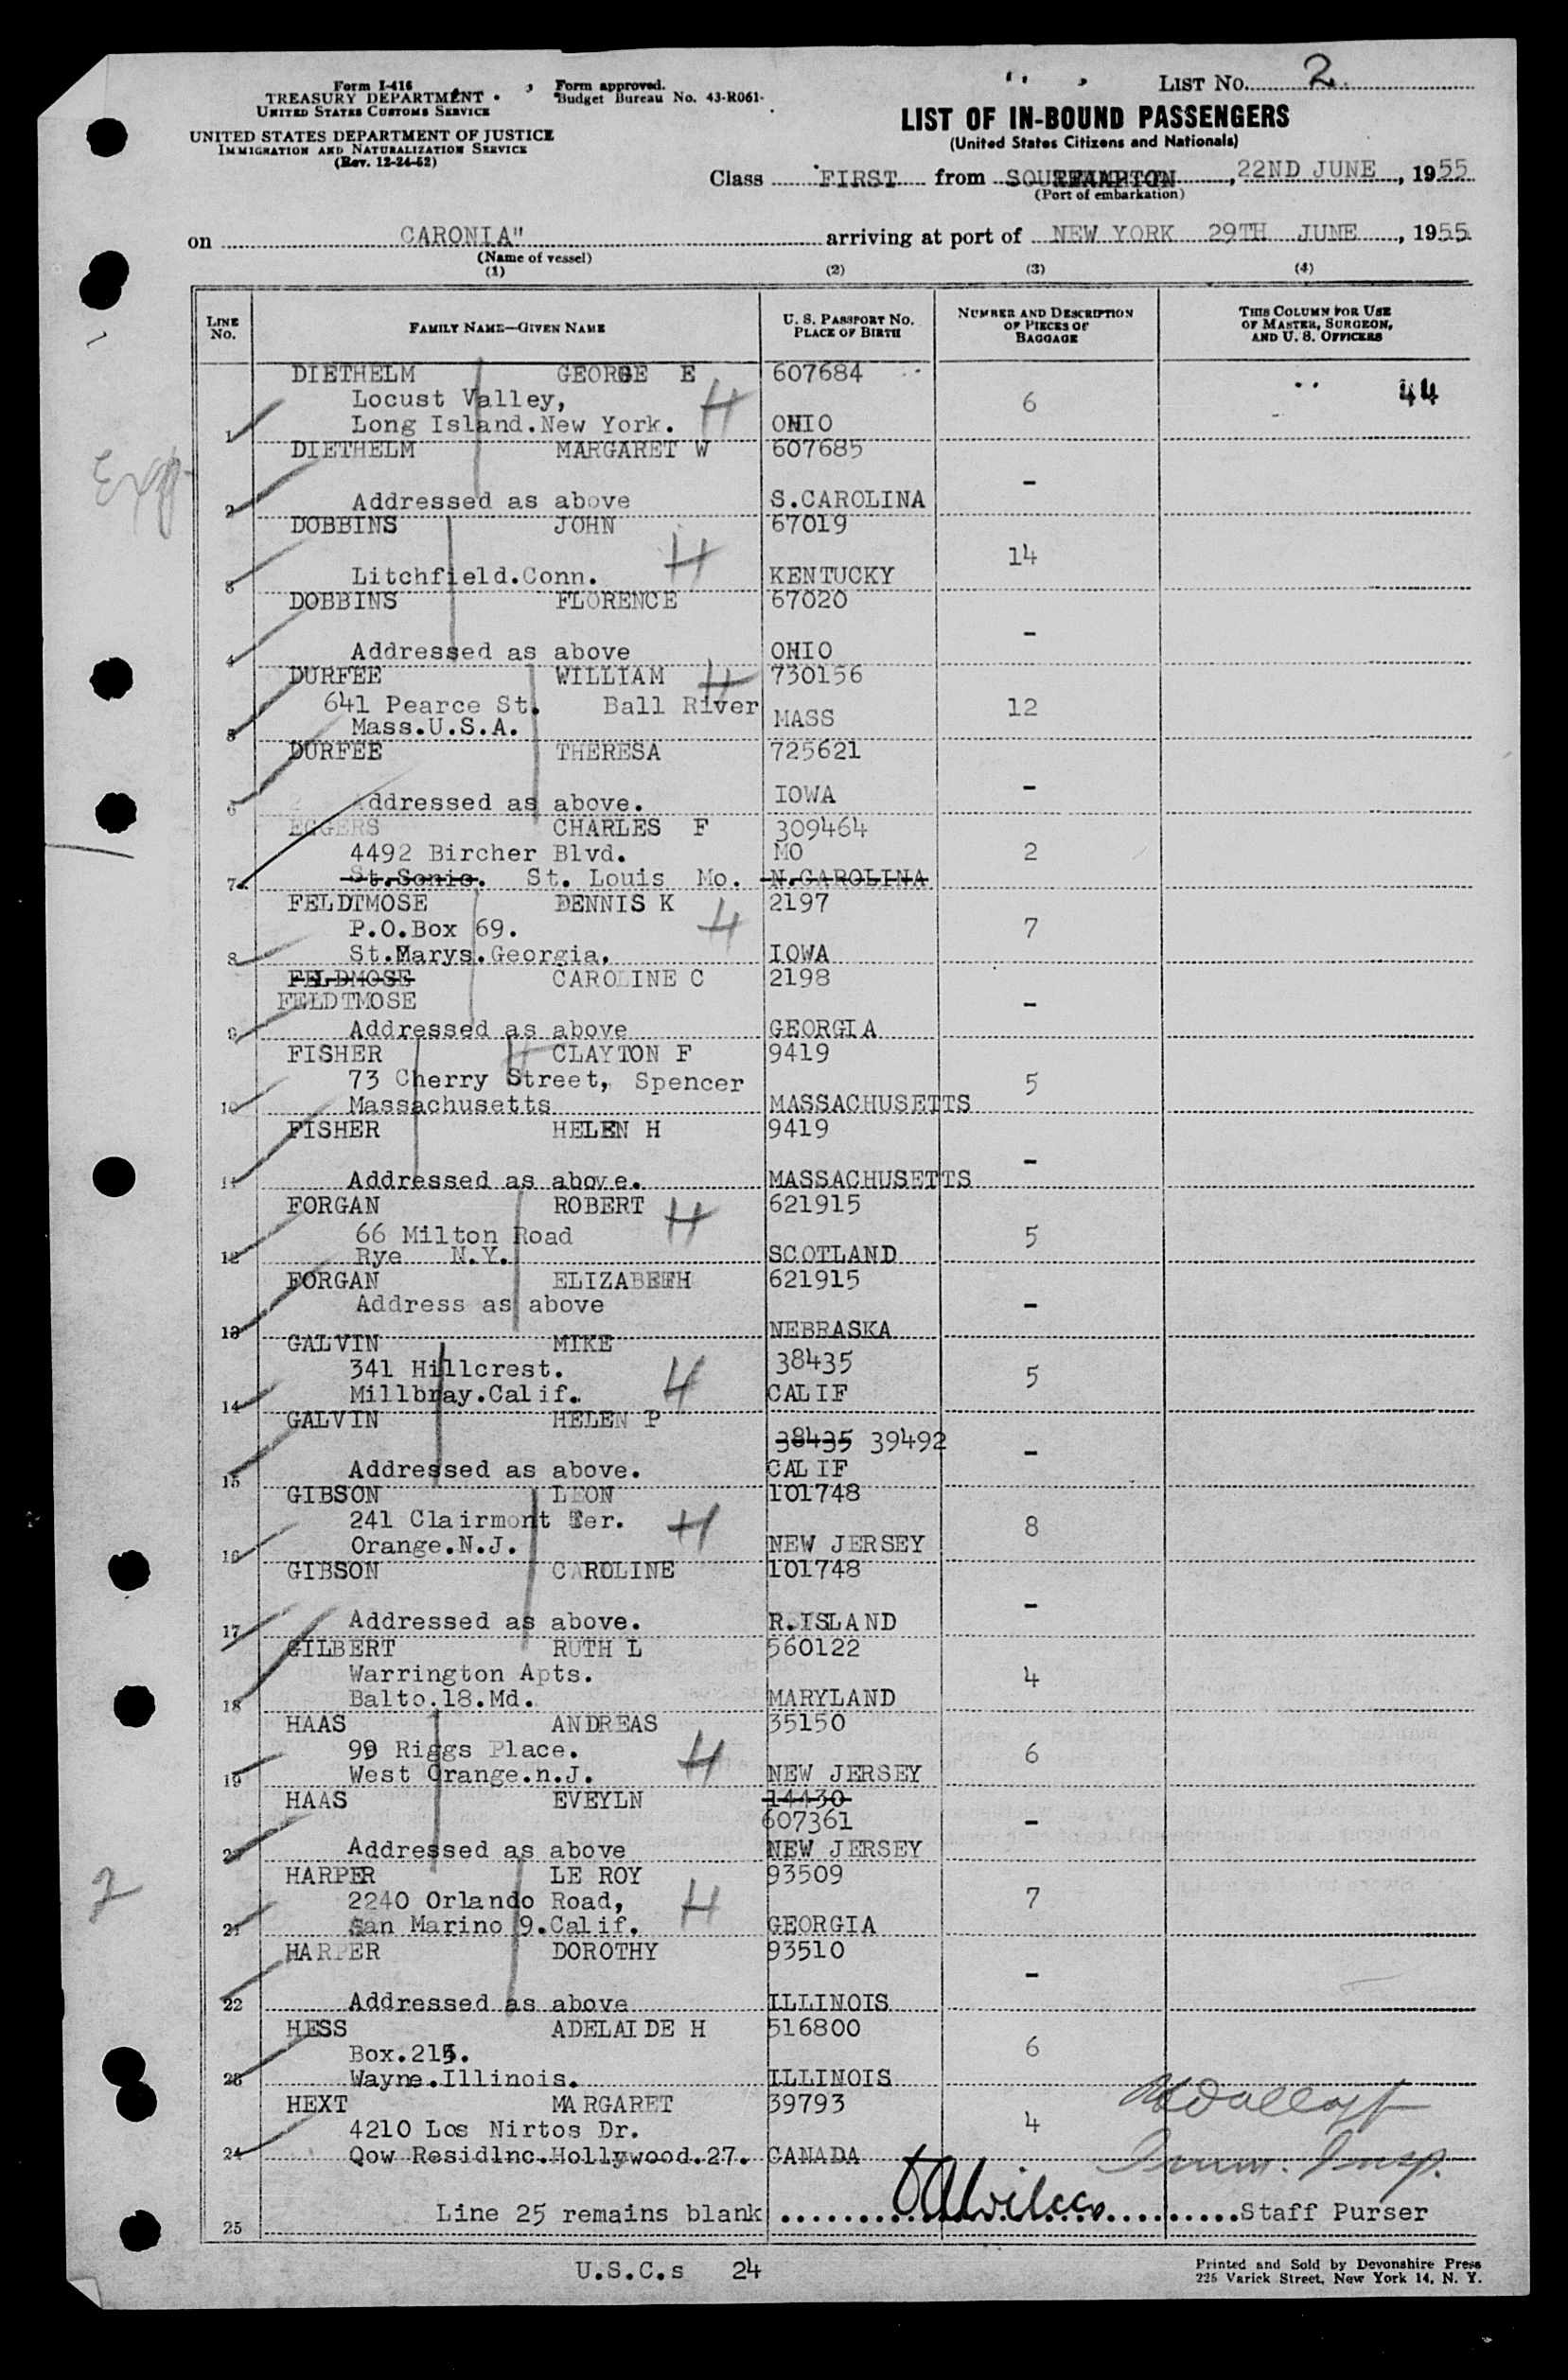 Form I-416
TREASURY DEPARTMENT
UNITED STATES CUSTOMS SERVICE
Form approved.
Budget Bureau No. 43-R061-
UNITED STATES DEPARTMENT OF JUSTICE
IMMIGRATION AND NATURALIZATION SERVICE
(Rev. 12-24-52)
LIST No. 2.
LIST OF IN-BOUND PASSENGERS
(United States Citizens and Nationals)
Class FIRST from SOUTHAMPTON, 22ND JUNE, 1955
(Port of embarkation)
on CARONIA" arriving at port of NEW YORK 29TH JUNE, 1955
(Name of vessel)
(1) (2) (3) (4)
LINE No. FAMILY NAME—GIVEN NAME U. S. PASSPORT NO. PLACE OF BIRTH NUMBER AND DESCRIPTION OF PIECES OF BAGGAGE THIS COLUMN FOR USE OF MASTER, SURGEON, AND U. S. OFFICERS
DIETHELM GEORGE E 607684
Locust Valley, 6 44
1 Long Island.New York. OHIO
DIETHELM MARGARET W 607685
-
2 Addressed as above S.CAROLINA
DOBBINS JOHN 67019
14
3 Litchfield.Conn. KENTUCKY
DOBBINS FLORENCE 67020
-
4 Addressed as above OHIO
DURFEE WILLIAM 730156
641 Pearce St. Ball River MASS 12
5 Mass.U.S.A.
DURFEE THERESA 725621
IOWA -
6 Addressed as above.
EGGERS CHARLES F 309464
4492 Bircher Blvd. MO 2
7 St.Sonic. St. Louis Mo. N.CAROLINA
FELDTMOSE DENNIS K 2197
P.O.Box 69. 7
8 St.Marys.Georgia. IOWA
FELDMOSE CAROLINE C 2198
FELDTMOSE -
9 Addressed as above GEORGIA
FISHER CLAYTON F 9419
73 Cherry Street, Spencer 5
10 Massachusetts MASSACHUSETTS
FISHER HELEN H 9419
-
11 Addressed as above. MASSACHUSETTS
FORGAN ROBERT 621915
66 Milton Road 5
12 Rye N.Y. SCOTLAND
FORGAN ELIZABETH 621915
Address as above -
13 NEBRASKA
GALVIN MIKE 38435
341 Hillcrest. 5
14 Millbray.Calif. CALIF
GALVIN HELEN P
38435 39492 -
15 Addressed as above. CALIF
GIBSON LEON 101748
241 Clairmont Ter. 8
16 Orange.N.J. NEW JERSEY
GIBSON CAROLINE 101748
-
17 Addressed as above. R.ISLAND
GILBERT RUTH L 560122
Warrington Apts. 4
18 Balto.18.Md. MARYLAND
HAAS ANDREAS 35150
99 Riggs Place. 6
19 West Orange.n.J. NEW JERSEY
HAAS EVEYLN 14430
607361 -
20 Addressed as above NEW JERSEY
HARPER LE ROY 93509
2240 Orlando Road, 7
21 San Marino 9.Calif. GEORGIA
HARPER DOROTHY 93510
-
22 Addressed as above ILLINOIS
HESS ADELAIDE H 516800
Box.215. 6
23 Wayne.Illinois. ILLINOIS
HEXT MARGARET 39793
4210 Los Nirtos Dr. 4
24 Qow Residlnc.Hollywood.27. CANADA
Imm. Insp.
Line 25 remains blank Staff Purser
25
U.S.C.s 24
Printed and Sold by Devonshire Press
225 Varick Street, New York 14, N. Y.
2